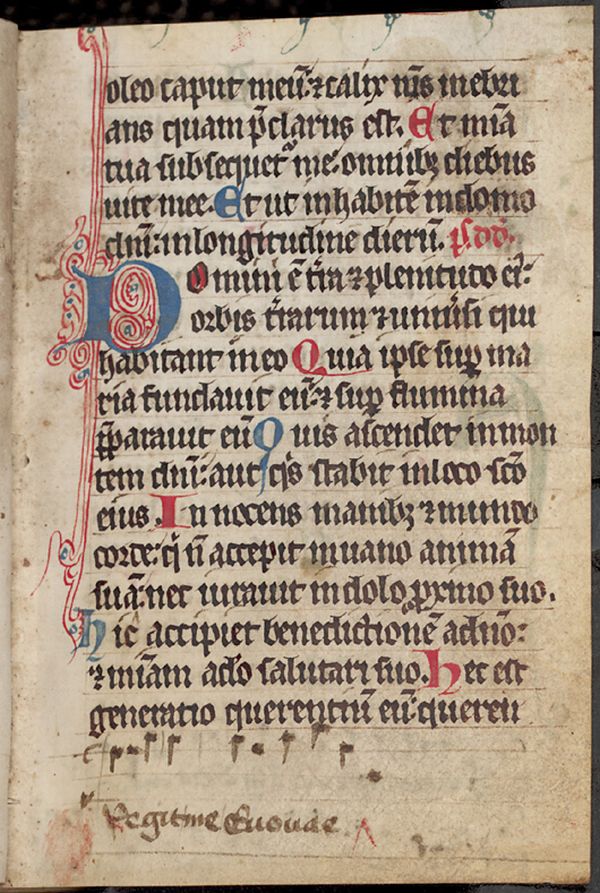 oleo caput meū ⁊ calix mīs inebri
ans quam p̄clarus est. Et mīa
tua subsequet᷑ me: omnibꝫ diebus
vite mee. Et ut inhabitē in domo
dnī: in longitudine dierū. ps. dd̄.
Domini ē tr̄a ⁊ plenitudo ei᷒:
orbis tr̄arum ⁊ uniūsi qui
habitant in eo Quia ipse sup̄ ma
ria fundauit eū: ⁊ sup̄ flumina
p̄parauit eū Quis ascendet in mon
tem dnī: aut qͥs stabit in loco scō
eius. Innocens manibꝫ ⁊ mundo
corde: qͥ n̄ accepit in uano animā
suā: nec iurauit in dolo ꝓximo suo.
Hic accipiet benedictionē a dnō:
⁊ miām a dō salutari suo. Hec est
generatio querentiū eū: queren
Euouae